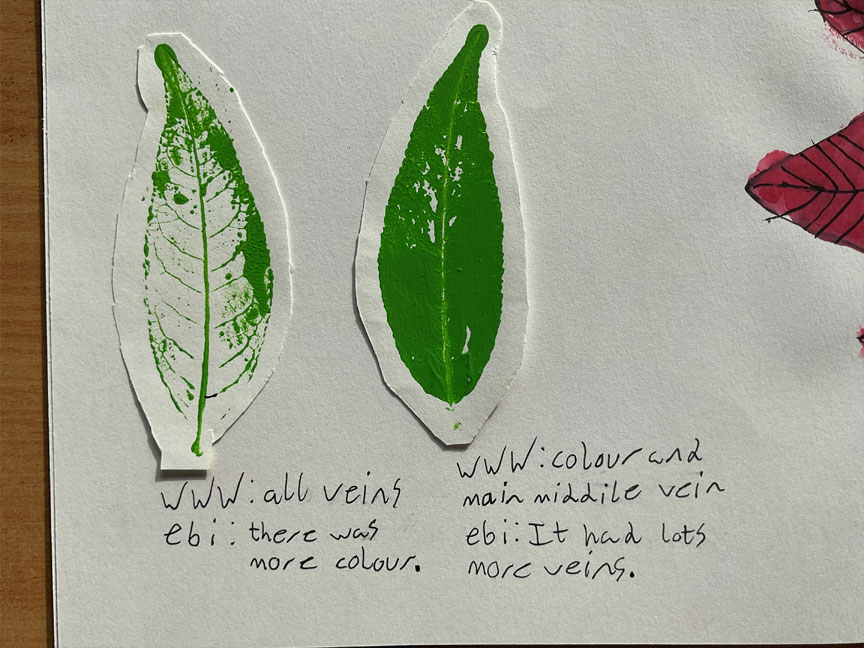 WWW: all veins
ebi: there was
more colour.
WWW: colour and
main middile vein
ebi: It had lots
more veins.